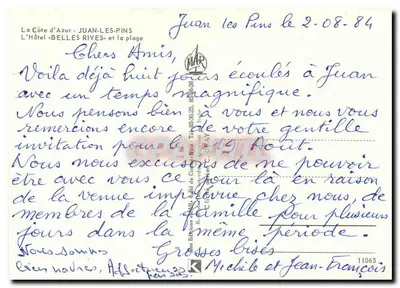 Juan les Pins le 2-08-84
La Côte d'Azur - JUAN-LES-PINS
L'Hôtel «BELLES RIVES» et la plage
Chers Amis,
Voila déjà huit jours écoulés à Juan
avec un temps magnifique.
Nous pensons bien à vous et nous vous
remercions encore de votre gentille
invitation pour le 19 Août.
Nous nous excusons de ne pouvoir
être avec vous ce jour là en raison
de la venue imprévue chez nous, de
membres de la famille pour plusieurs
jours dans la même période.
Grosses bises
Michèle et Jean-François
11065
MAR